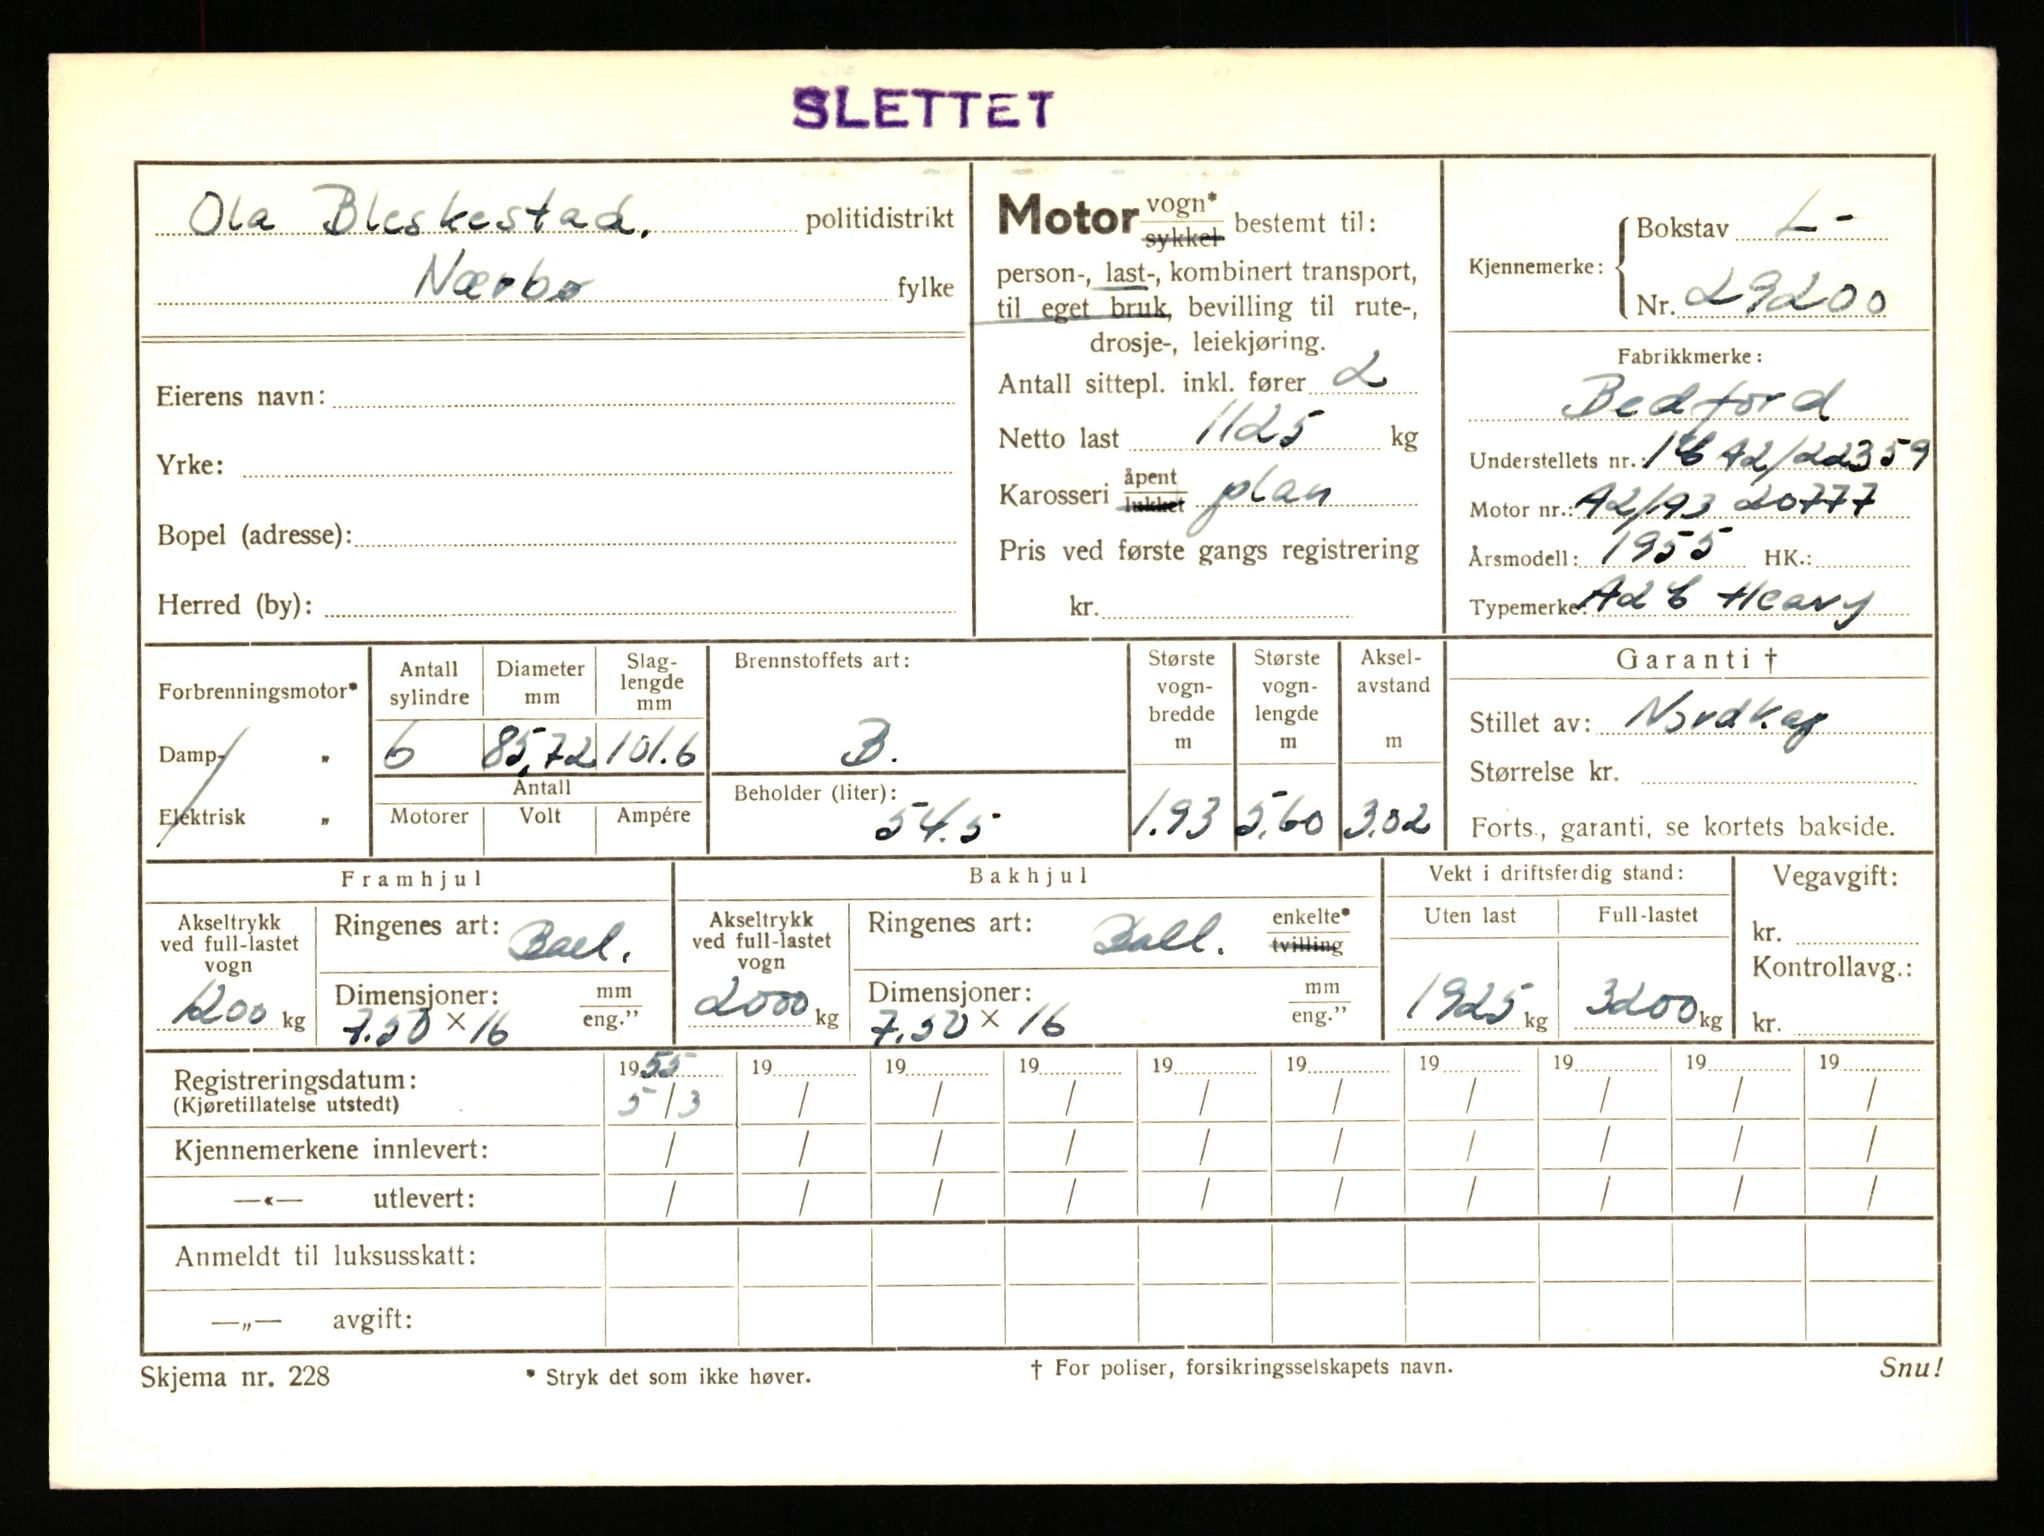 SLETTET
Ola Bleskestad. politidistrikt
Nærbø fylke
Eierens navn:
Yrke:
Bopel (adresse):
Herred (by):
Motor vogn* sykkel bestemt til:
person-, last-, kombinert transport,
til eget bruk, bevilling til rute-,
drosje-, leiekjøring.
Antall sittepl. inkl. fører 2
Netto last 1125 kg
Karosseri åpent lukket plan
Pris ved første gangs registrering
kr.
Kjennemerke:
Bokstav L-
Nr. 29200
Fabrikkmerke:
Bedford
Understellets nr.: A2/22359
Motor nr.: A2/193 20777
Årsmodell: 1955 HK.:
Typemerke: Heavy
Forbrenningsmotor*
Damp- „
Elektrisk „
Antall sylindre
6
Diameter mm
85,72
Slag-lengde mm
101.6
Antall
Motorer Volt Ampére
Brennstoffets art:
B.
Beholder (liter):
54.5
Største vogn-bredde m
1.93
Største vogn-lengde m
5,60
Aksel-avstand m
3.02
Garanti †
Stillet av: Nordkap
Størrelse kr.
Forts., garanti, se kortets bakside.
Framhjul
Akseltrykk
ved full-lastet
vogn
1200 kg
Ringenes art: Ball.
Dimensjoner: mm
7.50 × 16 eng."
Bakhjul
Akseltrykk
ved full-lastet
vogn
2000 kg
Ringenes art: Ball. enkelte* tvilling
Dimensjoner: mm
7.50 × 16 eng."
Vekt i driftsferdig stand:
Uten last Full-lastet
1925 kg 3200 kg
Vegavgift:
kr.
Kontrollavg.:
kr.
Registreringsdatum: 1955 19 19 19 19 19 19 19 19 19
(Kjøretillatelse utstedt) 5/3 / / / / / / / / /
Kjennemerkene innlevert: / / / / / / / / / /
—«— utlevert: / / / / / / / / / /
Anmeldt til luksusskatt:
—„— avgift:
Skjema nr. 228 * Stryk det som ikke høver. † For poliser, forsikringsselskapets navn. Snu!